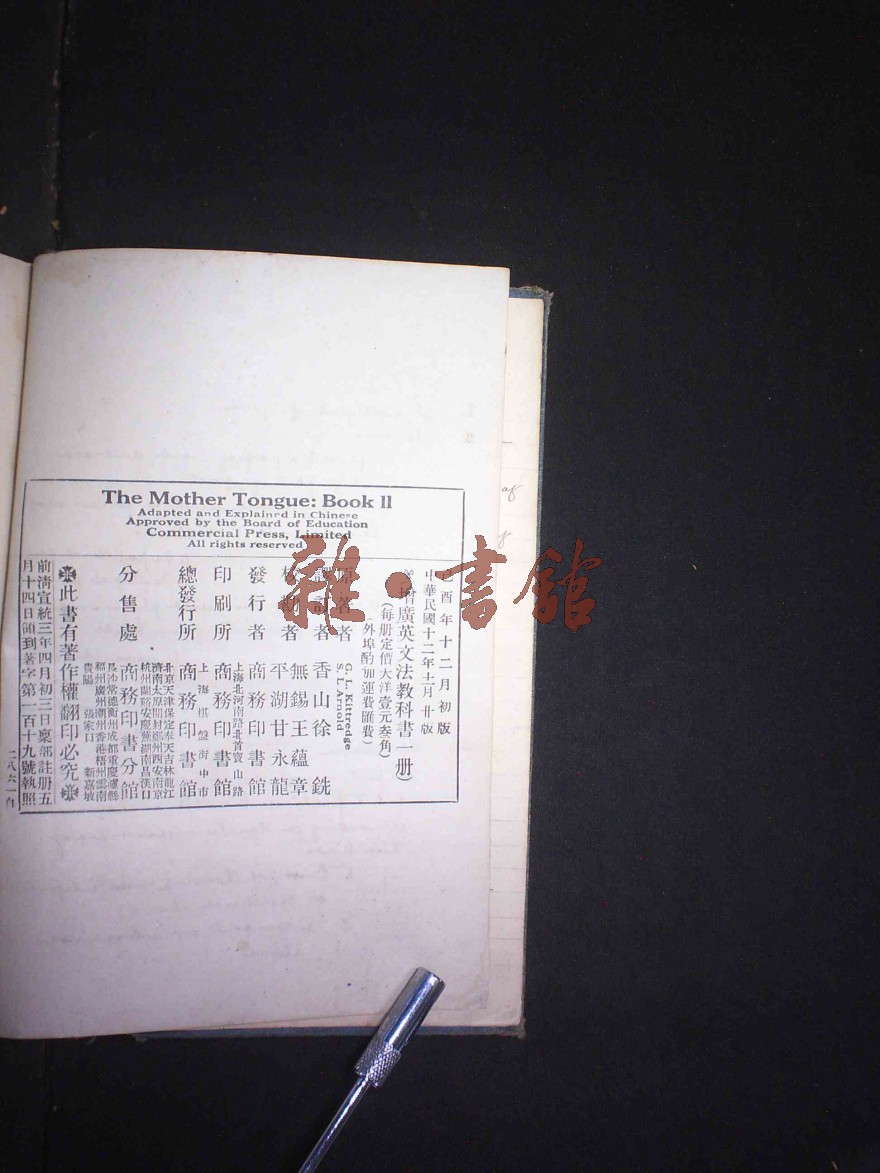 The Mother Tongue: Book II
Adapted and Explained in Chinese
Approved by the Board of Education
Commercial Press, Limited
All rights reserved
酉年十二月初版
中華民國十二年十一月廿版
增廣英文法教科書一册
(每册定價大洋壹元叁角)
(外埠酌加運費匯費)
原著者 G. L. Kittredge
S. L. Arnold
譯訂者 香山徐銑
校勘者 無錫王蘊章
平湖甘永龍
發行者 商務印書館
印刷所 上海北河南路北首寶山路
商務印書館
總發行所 上海棋盤街中市
商務印書館
分售處 北京天津保定奉天吉林龍江
濟南太原開封鄭州西安南京
杭州蘭谿安慶蕪湖南昌漢口
商務印書分館
長沙常德衡州成都重慶瀘縣
福州廣州潮州香港梧州雲南
貴陽 張家口 新嘉坡
此書有著作權翻印必究
前清宣統三年四月初三日稟部註册五
月十四日領到著字第一百十九號執照
二八六一自
雜·書館